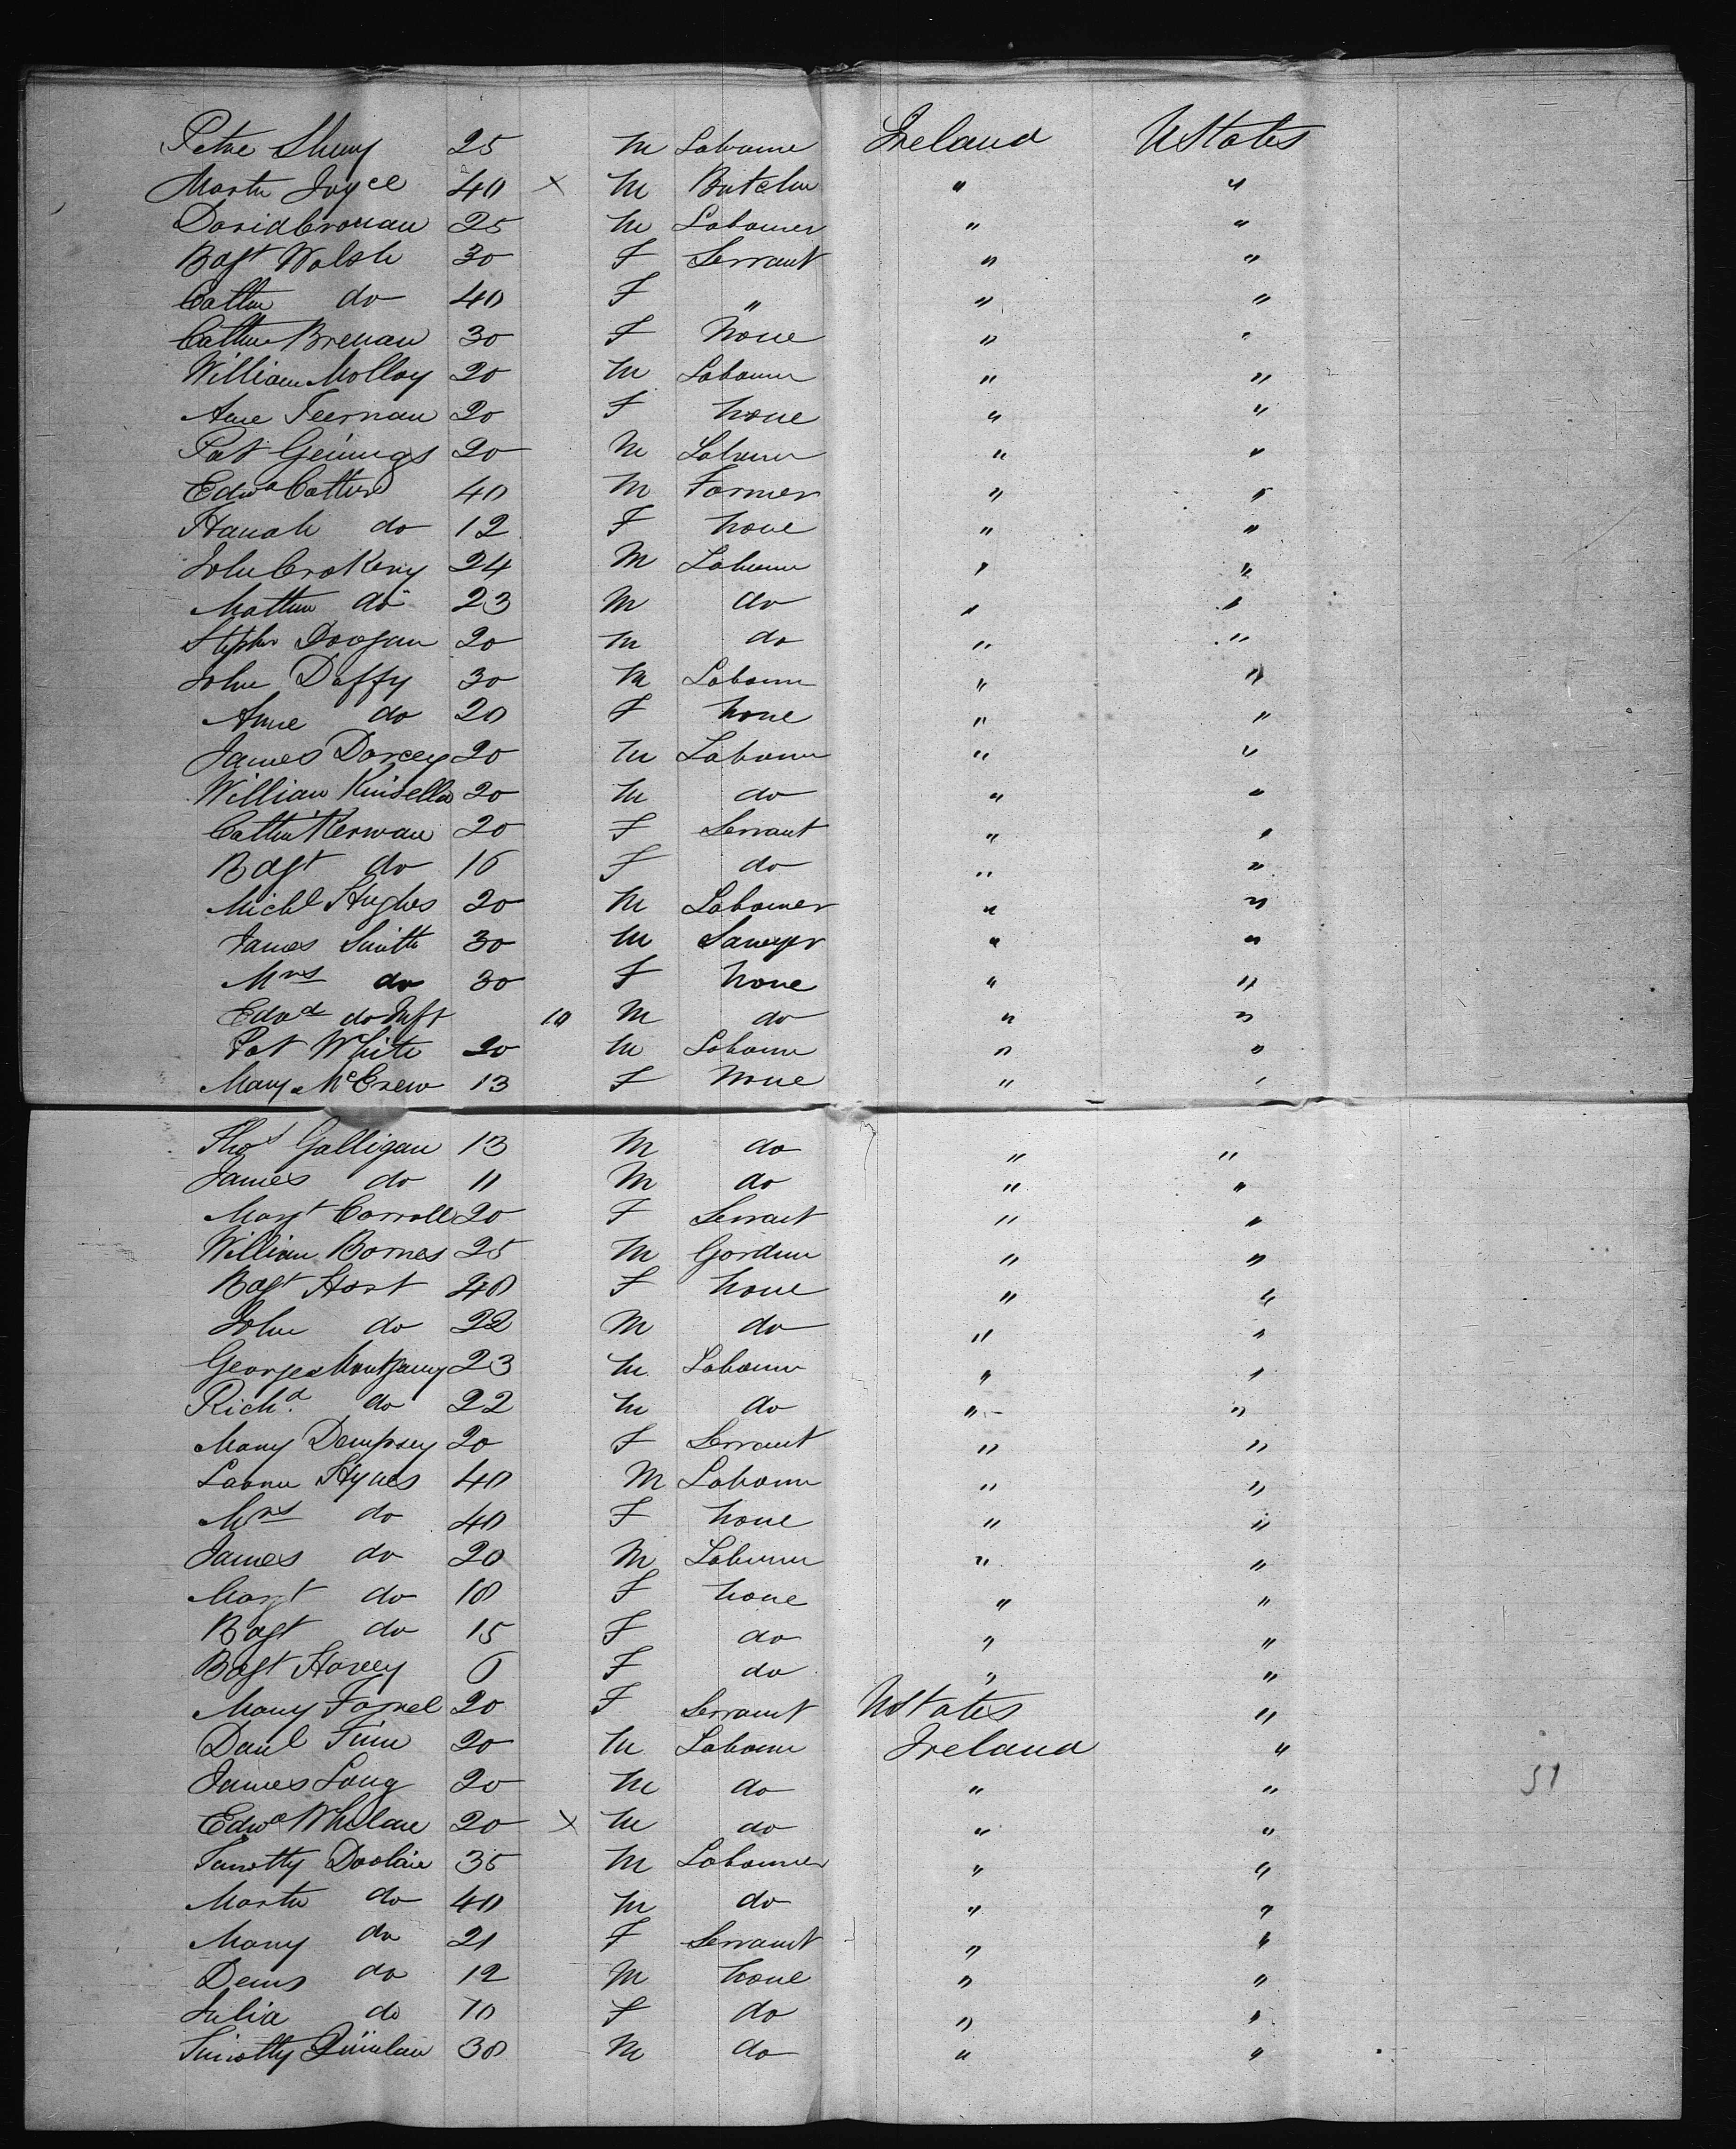 Petre Sheny 25 M Labourer Ireland UStates
Martin Joyce 40 × M Butcher " "
David Cronan 25 M Labourer " "
Bagt Walsh 30 F Servant " "
Cathe do 40 F " " "
Cathe Brenan 30 F None " "
William Molloy 20 M Labourer " "
Ane Teernan 20 F None " "
Pat Gennings 20 M Labourer " "
Edwd 40 M Farmer " "
Hanah do 12 F None " "
John Crokeny 24 M Labourer " "
Matthew do 23 M do " "
Stephn Doogan 20 M do " "
John Daffy 30 M Labourer " "
Anne do 20 F None " "
James Darcey 20 M Labourer " "
William Kinsella 20 M do " "
Cathn Kerwan 20 F Servant " "
Bagt do 16 F do " "
Michl Hughes 20 M Labourer " "
James Smith 30 M Sawyer " "
Mrs do 30 F None " "
Edwd do Inft 10 M do " "
Pat White 20 M Labourer " "
Mary McCrew 13 F None " "
Thos Galligan 13 M do " "
James do 11 M do " "
Margt Carroll 20 F Servant " "
William Barnes 25 M Gardner " "
Bagt Hart 40 F None " "
John do 22 M do " "
George Montgamy 23 M Labourer " "
Richd. do 22 M do " "
Mary Dempsey 20 F Servant " "
Hynes 40 M Labourer " "
Mrs do 40 F None " "
James do 20 M Labourer " "
Margt do 18 F None " "
Bagt do 15 F do " "
Bagt Harey 6 F do " "
Mary Farrel 20 F Servant UStates "
Danl Finn 20 M Labourer Ireland "
James Long 20 M do " " 51
Edwd Whelane 20 × M do " "
Timothy Doolaie 35 M Labourer " "
Martin do 40 M do " "
Mary do 21 F Servant " "
Denis do 12 M None " "
Julia do 10 F do " "
Timothy Quinlan 30 M do " "